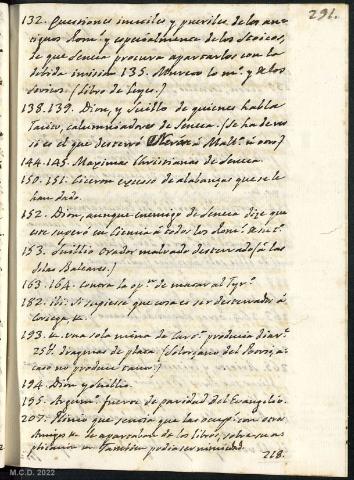 291.
132. Questiones inutiles y pueriles de los an-
tiguos Rom.s y especialmente de los Stoicos,
de que Seneca procura apartarlos con la
debida
135.
(Libro de Leyes.)
138.139. Dion, y Suillo de quienes habla
Tacito, calumniadores de Seneca. (Se ha de ver
si es el que desterró Neron à
144.145. Maximas Christianas de Seneca.
150.151. Ciceron excesso de alabanzas que se le
han dado.
152. Dion, aunque enemigo de Seneca dize que
este superò en Ciencia à todos los Rom.s
153. Suillio Orador malvado desterrado (à las
Islas Baleares.)
163.164. contra la op.n de matar al Tyr.o
182. Si supiesse que cosa es ser desterrado à
Corsega
193. una sola mina de Cart.a producia diar.te
25@ dragmas de plata.
caso no produce tanto.)
194. Dion y Suillio.
195. Argum.to fuerte de paridad del Evangelio.
207. Plinio que sentia que las ocup.s con otros
Amigos le apartaban de los libros, sobre su
tambien podia ser nimiedad.
218.
M.C.D. 2022